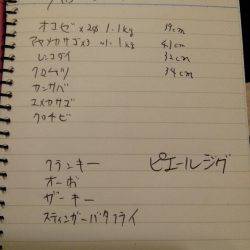 オコゼ×2尾 1.1kg 39cm
アヤメカサゴ×3 〜1.1kg 41cm
レンコダイ 32cm
クロムツ 34cm
カンサバ
ユメカサゴ
クロチビ
クランキー ピエールジグ
オーボ
ザーキー
スティンガーバタフライ